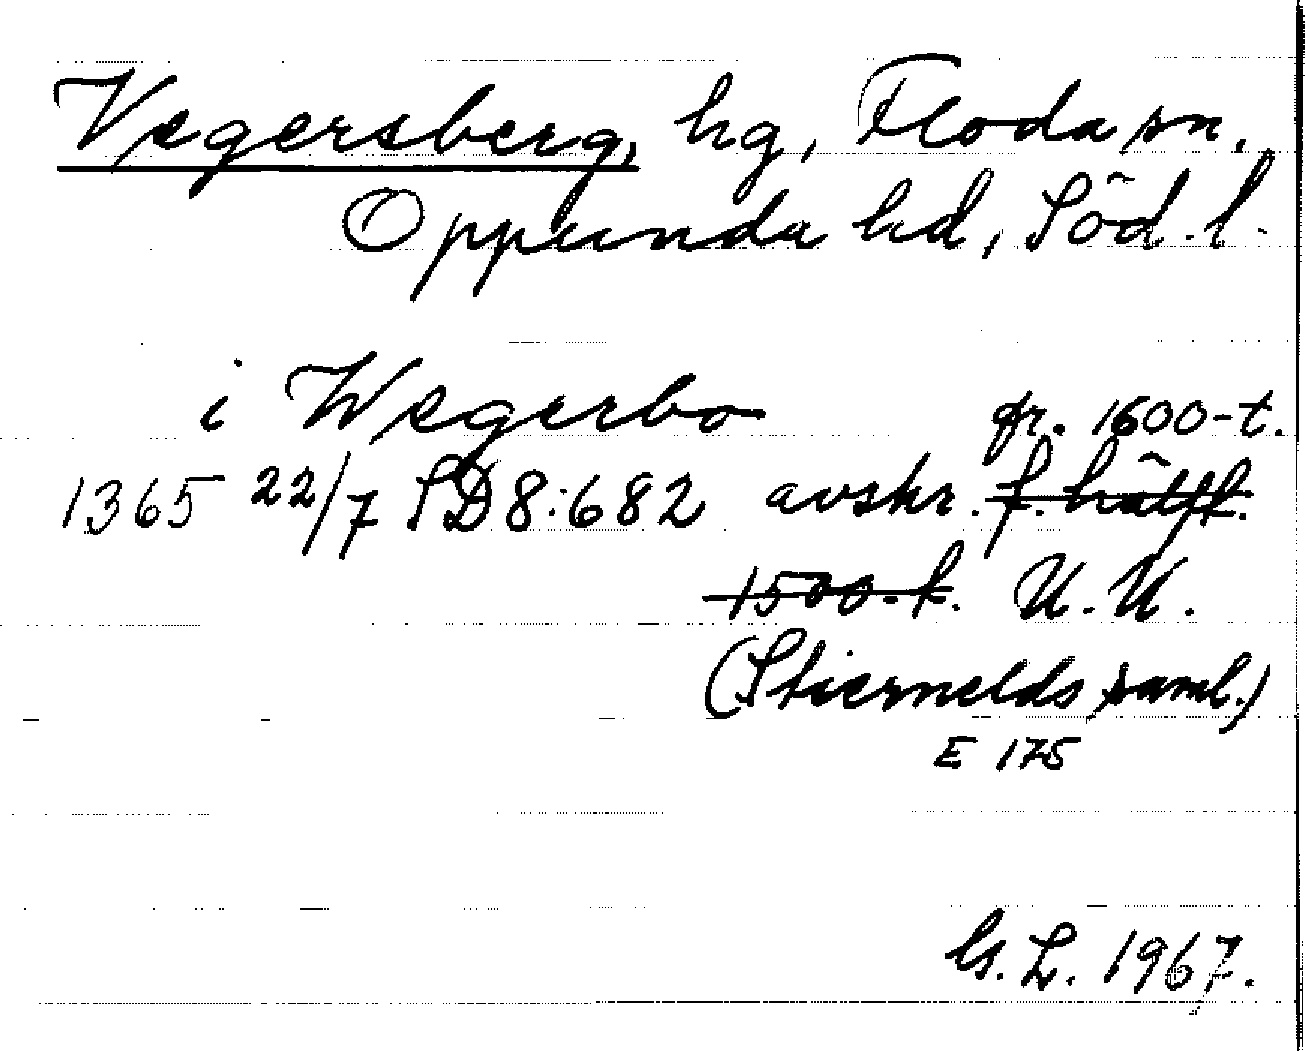 Vegersberg, hg, Floda sn.
Oppunda hd, Söd. l.
i Wegerbo
1365 22/7 SD 8:682 avskr. f. hälft.
fr. 1600-t.
1500-t. U.U.
(Stiernelds saml.)
E 175
G. L. 1967.